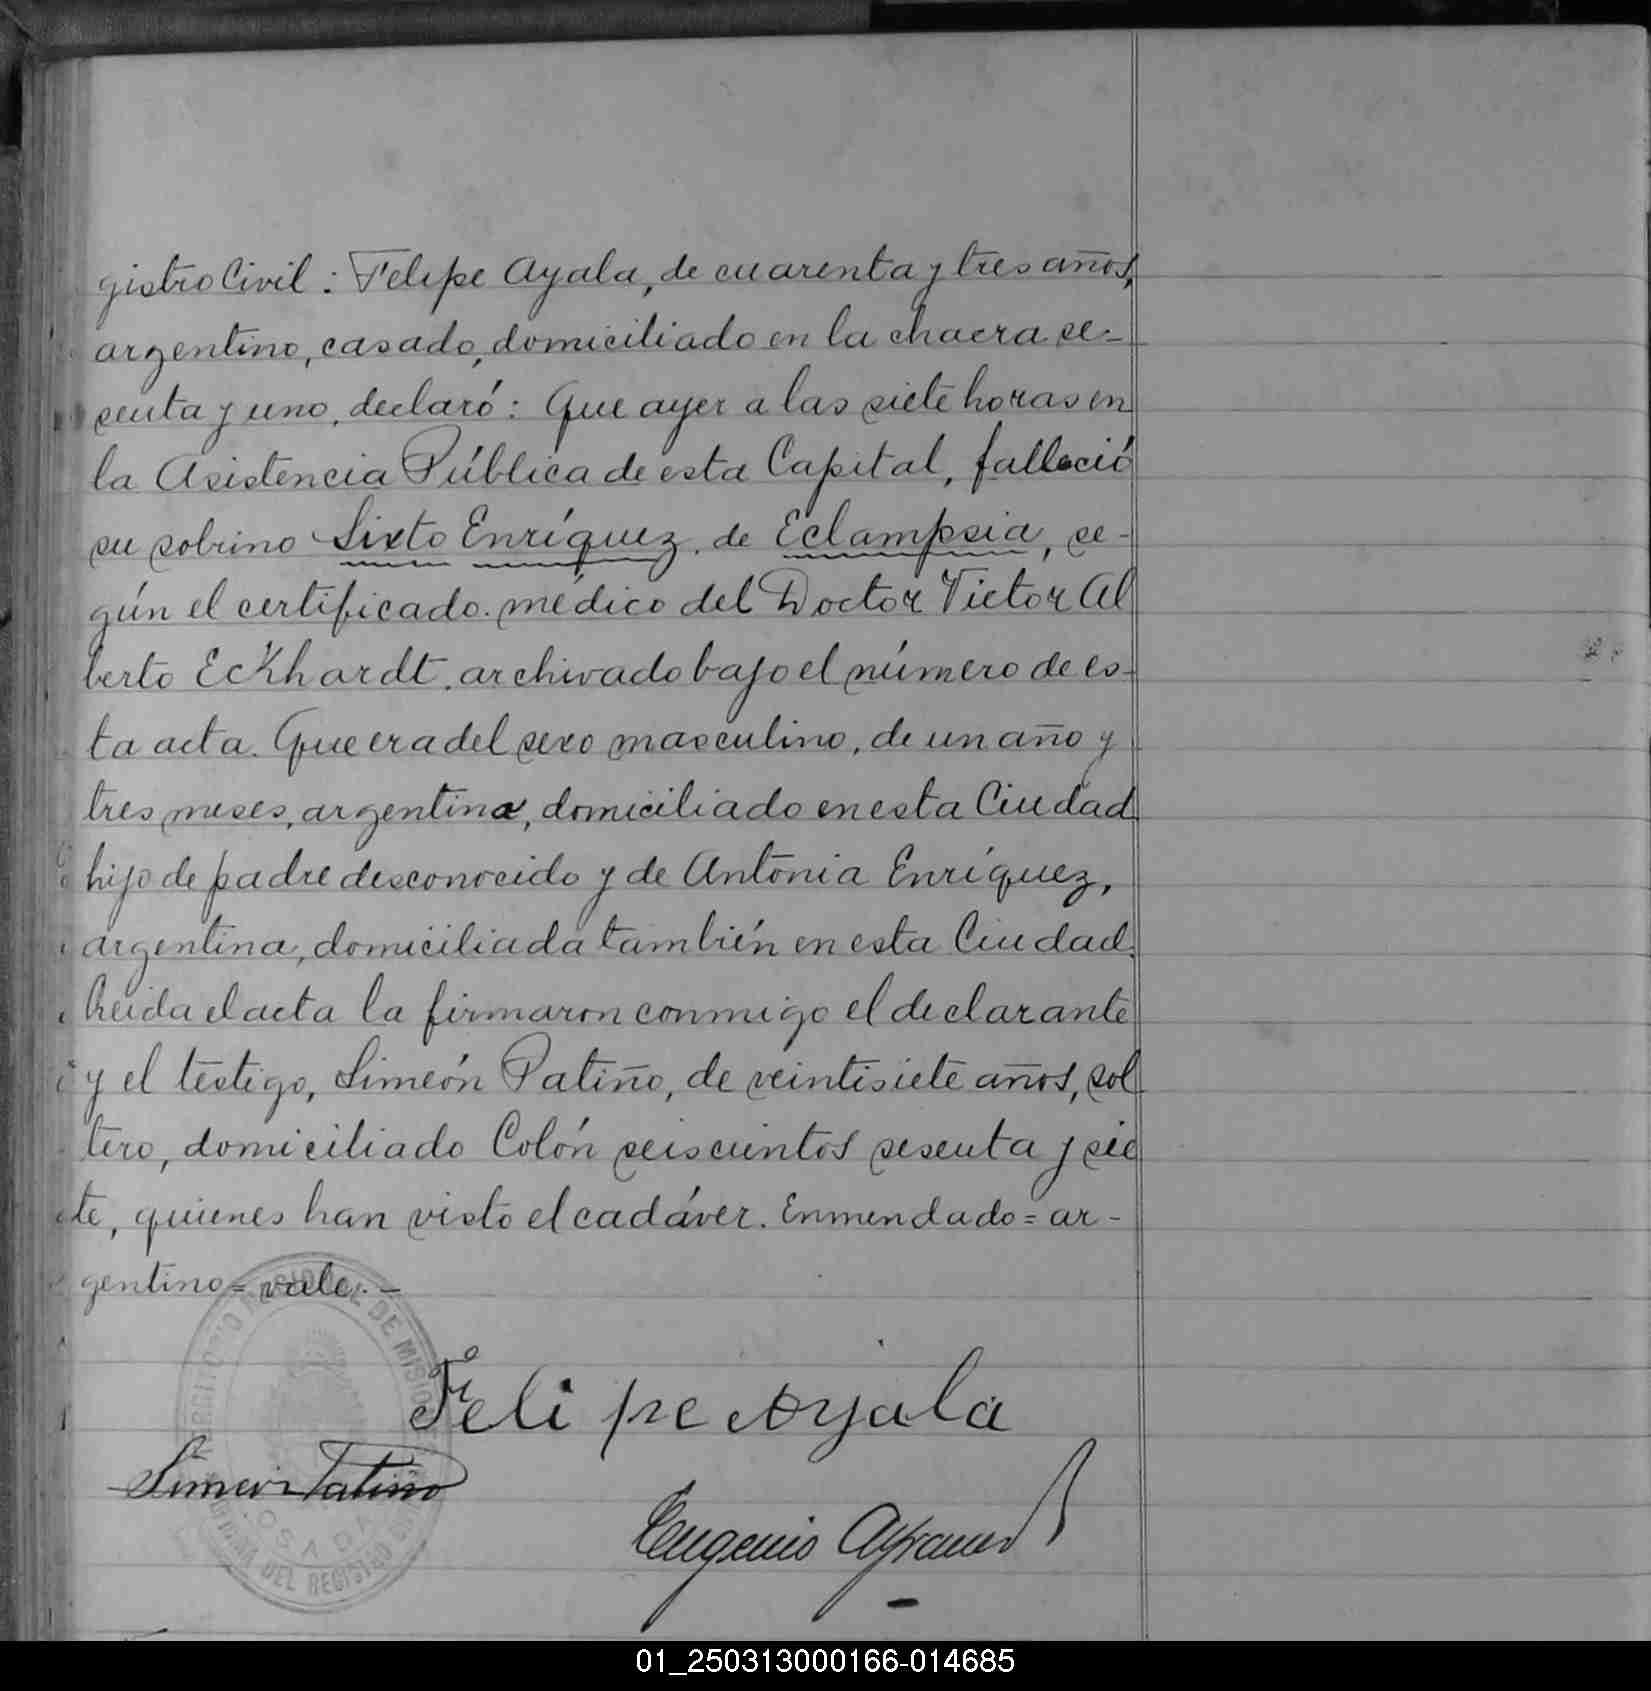 gistro Civil: Felipe Ayala, de cuarenta y tres años,
argentino, casado, domiciliado en la chacra se-
senta y uno, declaró: Que ayer a las siete horas en
la Asistencia Pública de esta Capital, falleció
su sobrino Sixto Enríquez, de Eclampsia, se-
gún el certificado médico del Doctor Victor Al
berto Eckhardt, archivado bajo el número de es-
ta acta. Que era del sexo masculino, de un año y
tres meses, argentino, domiciliado en esta Ciudad
hijo de padre desconocido y de Antonia Enríquez,
argentina, domiciliada también en esta Ciudad.
Leida el acta la firmaron conmigo el declarante
y el testigo, Simeón Patiño, de veintisiete años, sol
tero, domiciliado Colón seiscientos sesenta y sie
te, quienes han visto el cadáver. Enmendado = ar-
gentino = vale. -
Felipe Ayala
Simeón Patiño
Eugenio
DE MISIONES
POSADAS
OFICINA DEL REGISTRO
01_250313000166-014685